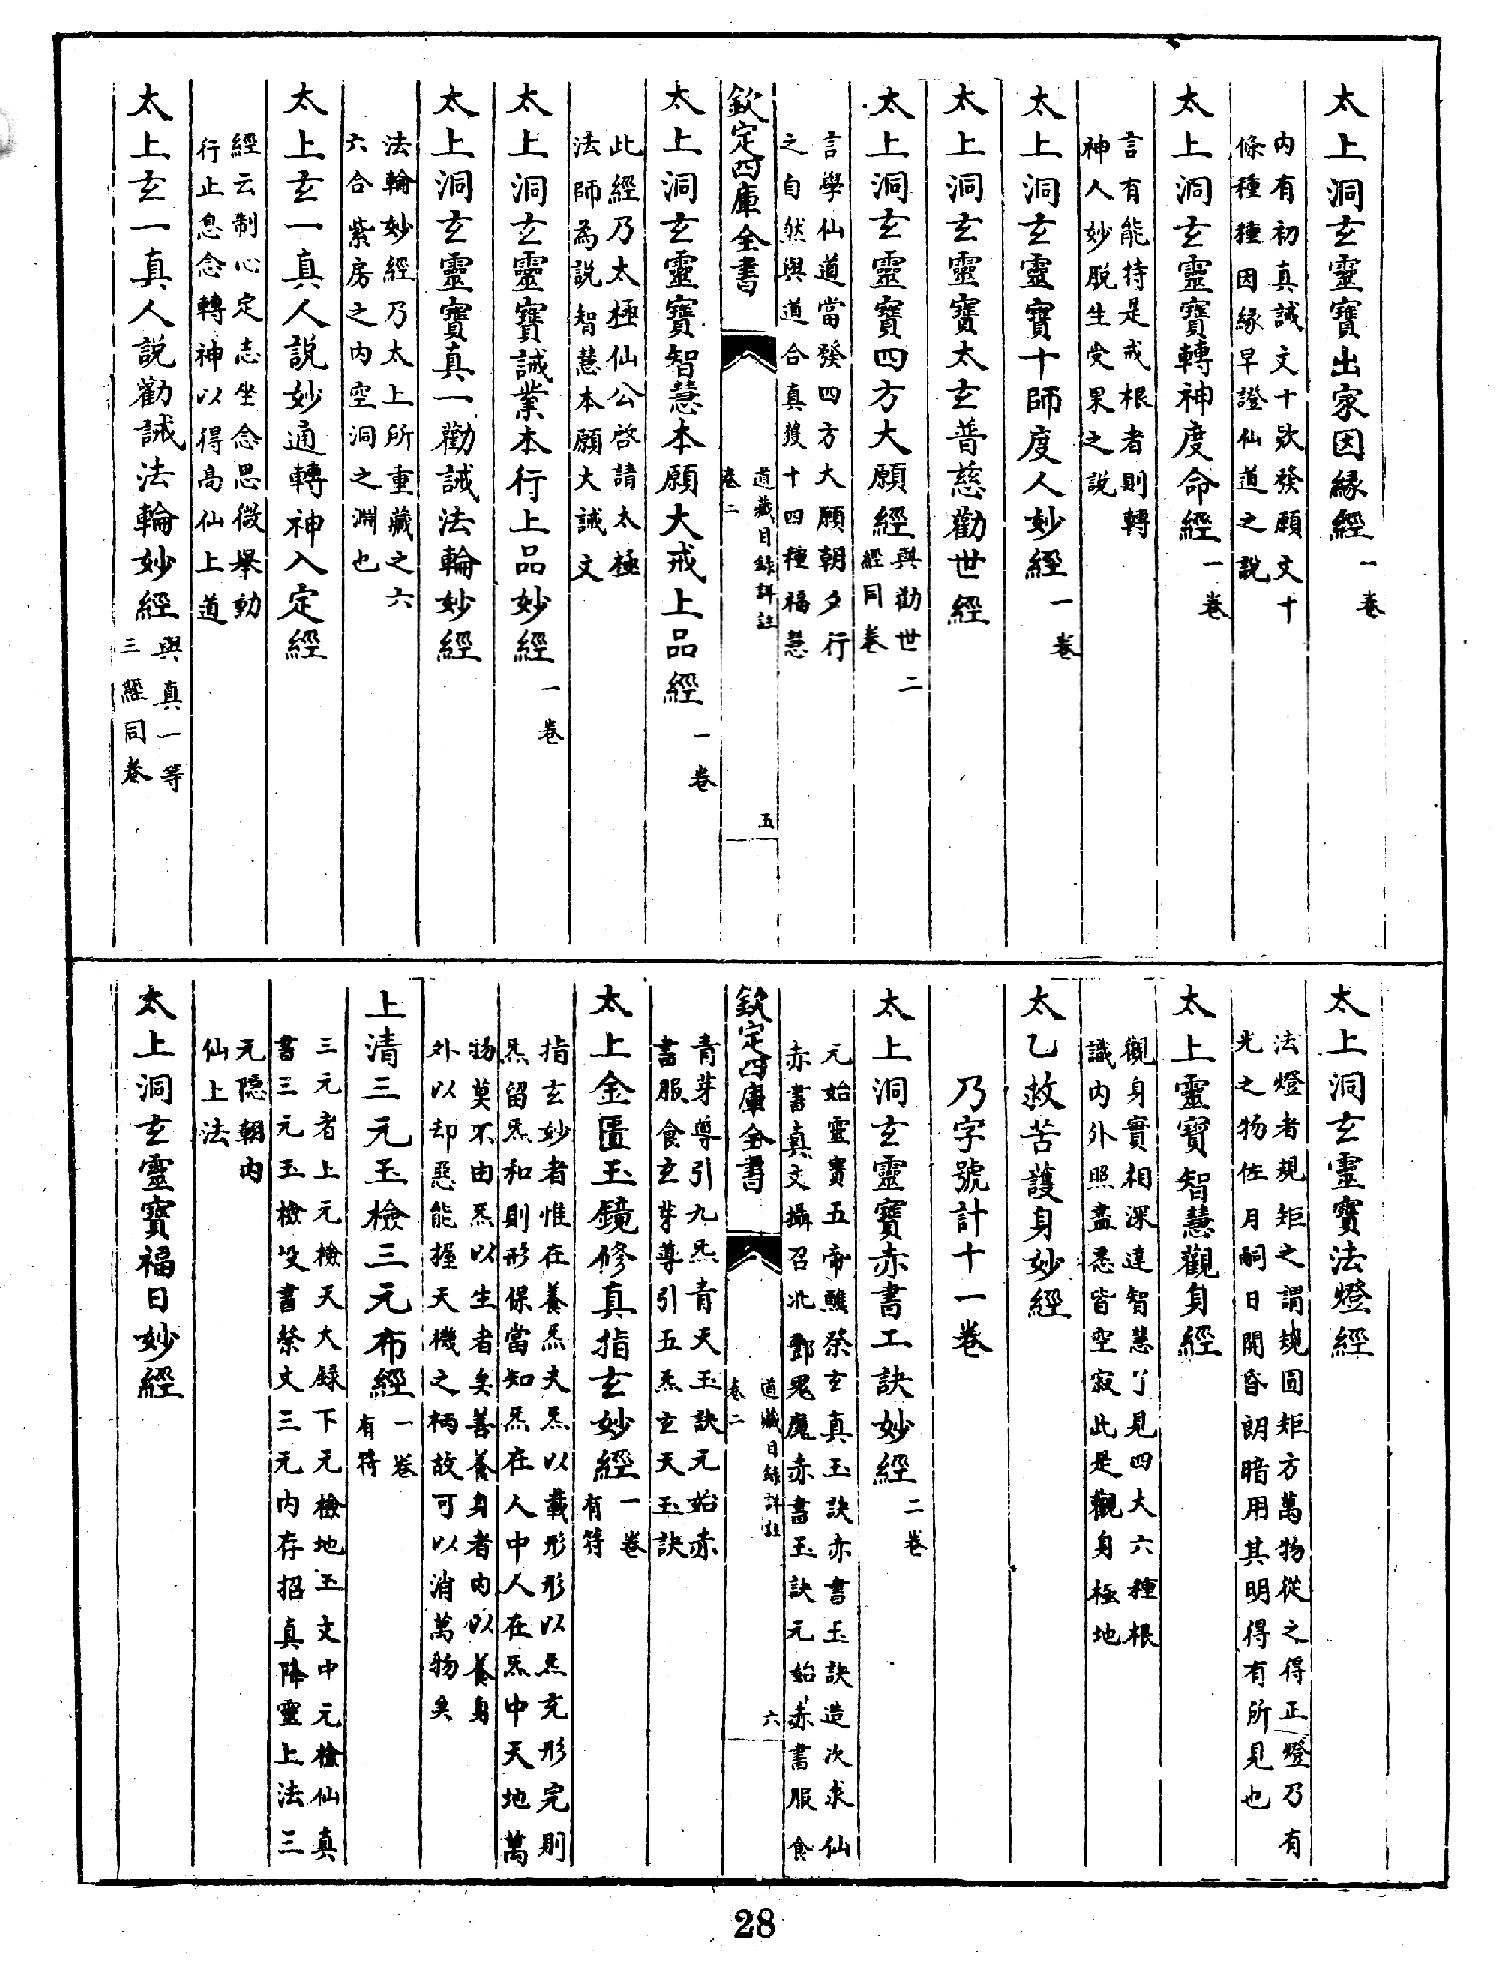 太上洞玄靈寶出家因緣經一卷
内有初真誡文十欵發願文十
條種種因緣早證仙道之說
太上洞玄靈寶轉神度命經一卷
言有能持是戒根者則轉
神人妙脫生受果之說
太上洞玄靈寶十師度人妙經一卷
太上洞玄靈寶太玄普慈勸世經
太上洞玄靈寶四方大願經與勸世二
經同卷
言學仙道當發四方大願朝夕行
之自然與道合真獲十四種福慧
欽定四庫全書
道藏目録詳註
卷二
五
太上洞玄靈寶智慧本願大戒上品經一卷
此經乃太極仙公啓請太極
法師為說智慧本願大誡文
太上洞玄靈寶誡業本行上品妙經一卷
太上洞玄靈寶真一勸誡法輪妙經
法輪妙經乃太上所重藏之六
六合紫房之内空洞之淵也
太上玄一真人說妙通轉神入定經
經云制心定志坐念思微舉動
行止息念轉神以得高仙上道
太上玄一真人說勸誡法輪妙經與真一等
三經同卷
太上洞玄靈寶法燈經
法燈者規矩之謂規圓矩方萬物從之得正燈乃有
光之物佐月嗣日開昏朗暗用其明得有所見也
太上靈寶智慧觀身經
觀身實相深達智慧了見四大六種根
識内外照盡悉皆空寂此是觀身極地
太乙救苦護身妙經
乃字號計十一卷
太上洞玄靈寶赤書工訣妙經二卷
元始靈寶五帝醮祭玄真玉訣赤書玉訣造次求仙
赤書真文攝召北酆鬼魔赤書玉訣元始赤書服食
欽定四庫全書
道藏目録詳註
卷二
六
青芽尊引九炁青天玉訣元始赤
書服食玄芽尊引五炁玄天玉訣
太上金匱玉鏡修真指玄妙經一卷
有符
指玄妙者惟在養炁夫炁以載形形以炁充形完則
炁留炁和則形保當知炁在人中人在炁中天地萬
物莫不由炁以生者矣善養身者内以養身
外以却惡能握天機之柄故可以消萬物矣
上清三元玉檢三元布經一卷
有符
三元者上元檢天大録下元檢地玉文中元檢仙真
書三元玉檢殳書祭文三元内存招真降靈上法三
元隠朝内
仙上法
太上洞玄靈寶福日妙經
28